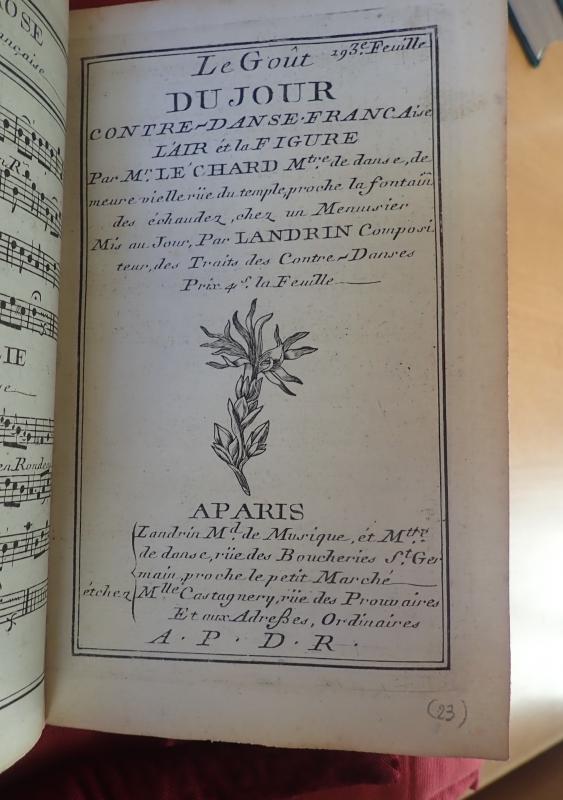 OSE
ançaise
LIE
en Rondea
Le Goût 193.e Feuille
DU JOUR
CONTRE-DANSE-FRANCAise
L'AIR ét la FIGURE
Par Mr. LE CHARD Mtre de danse, de
meure vielle rüe du temple, proche la fontain
des échaudez, chez un Menuisier
Mis au Jour, Par LANDRIN Composi.
teur, des Traits des Contre-Danses
Prix 4s. la Feuille
A PARIS
Landrin Md. de Musique, ét Mttre.
de danse, rüe des Boucheries St. Ger
main, proche le petit Marché
étchez Mlle Castagnery, rüe des Prouvaires
Et aux Adreßes, Ordinaires
A. P. D. R.
(23)